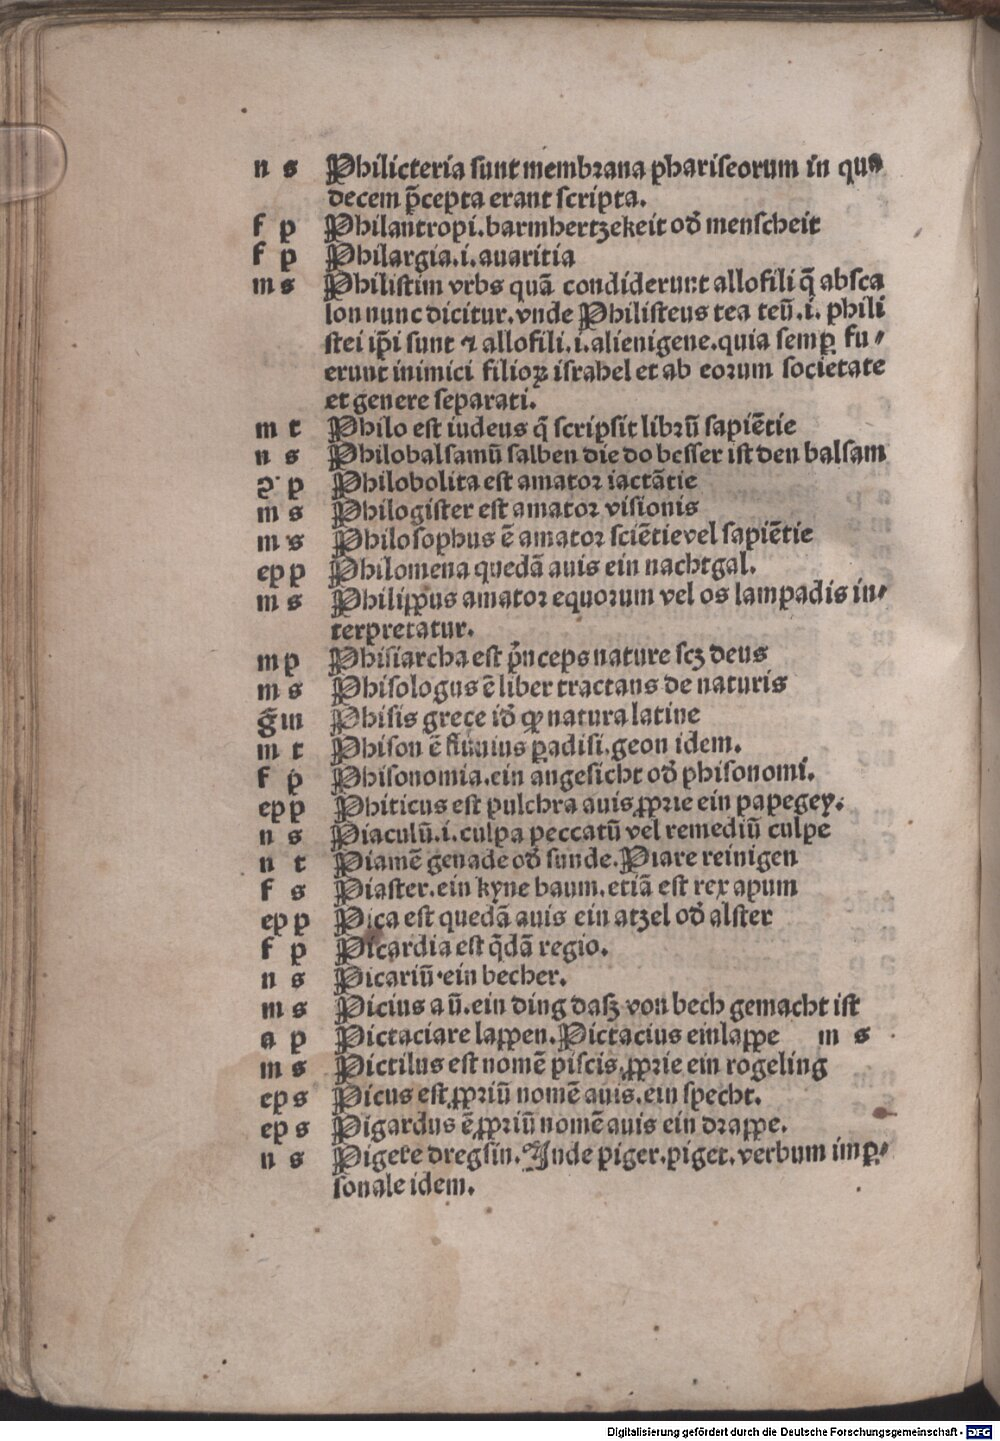 n s Philicteria sunt membrana phariseorum in quo
decem p̄cepta erant scripta.
f p Philantropi.barmhertzekeit od̓ menscheit
f p Philargia.i.auaritia
m s Philistim vrbs quā condiderunt allofili q̄ absca
lon nunc dicitur.vnde Philisteus tea teū.i.phili
stei ip̄i sunt ⁊ allofili.i.alienigene.quia semꝑ fu⸗
erunt inimici filioꝝ israhel et ab eorum societate
et genere separati.
m t Philo est iudeus q̄ scripsit librū sapiētie
n s Philobalsamū salben die do besser ist den balsam
p Philobolita est amator iactātie
m s Philogister est amator visionis
m s Philosophus ē amator sciētie vel sapiētie
ep p Philomena quedā auis ein nachtgal.
m s Philippus amator equorum vel os lampadis in⸗
terpretatur.
m p Phisiarcha est p̄nceps nature scꝫ deus
m s Phisologus ē liber tractans de naturis
ḡ in Phisis grece id̓ ꝙ natura latine
m t Phison ē fluuius ꝑadisi.geon idem.
f p Phisonomia.ein angesicht od̓ phisonomi.
ep p Phiticus est pulchra auis ꝓprie ein papegey.
n s Piaculū.i.culpa peccatū vel remediū culpe
n t Piamē genade od̓ sunde.Piare reinigen
f s Piaster.ein kyne baum.etiā est rex apum
ep p Pica est quedā auis ein atzel od̓ alster
f p Picardia est q̄dā regio.
n s Picariū.ein becher.
m s Picius a ū.ein ding dasz von bech gemacht ist
a p Pictaciare lappen.Pictacius ein lappe m s
m s Pictilus est nomē piscis ꝓprie ein rogeling
ep s Picus est ꝓpriū nomē auis.ein specht.
ep s Pigardus ē ꝓpriū nomē auis ein drappe.
n s Pigere dreg sin.Inde piger.piget.verbum imꝑ⸗
sonale idem.
Digitalisierung gefördert durch die Deutsche Forschungsgemeinschaft - DFG